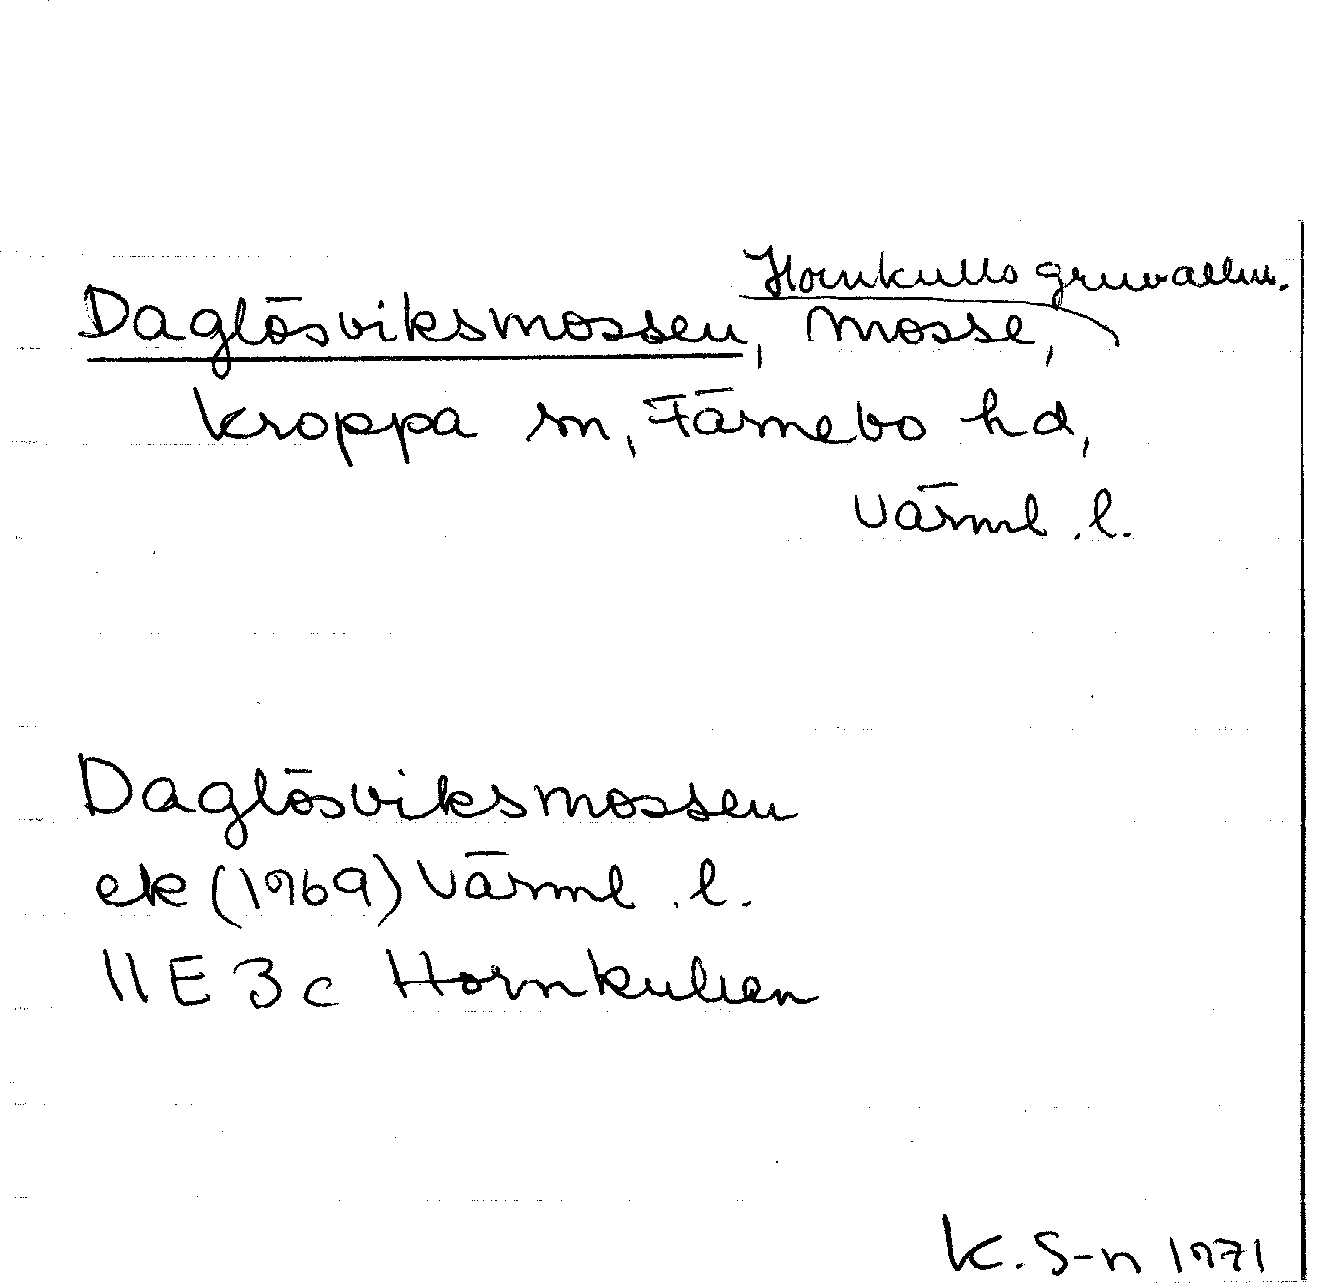 Hornkulls gruvallm.
Daglösviksmossen, mosse,
Kroppa sn, Färnebo hd,
Värml. l.
Daglösviksmossen
ek (1969) Värml. l.
11E 3c Hornkullen
K. S-n 1971